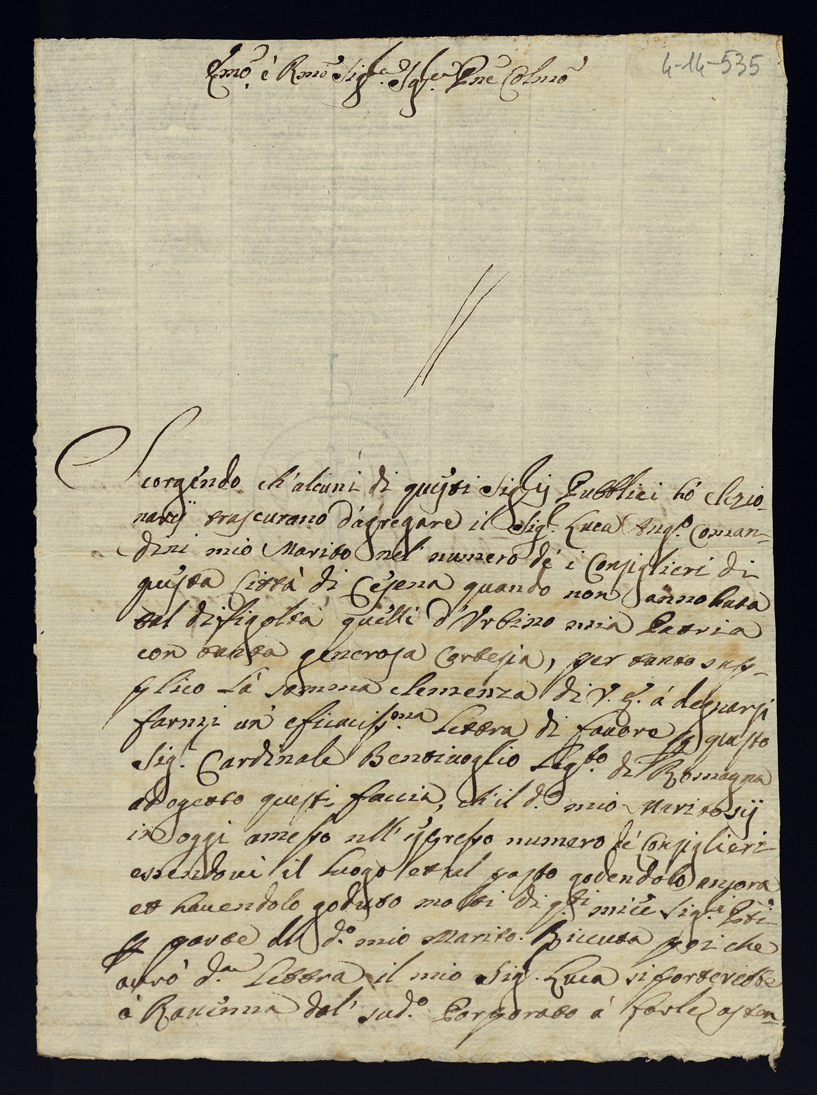 Emo è Rmo Sigre Sigre Pne Colmo
4-14-535
Scorgendo ch'alcuni di questi Sigrij Pubblici hó Elezio-
narij trascurano d'agregare il Sigr Luca Ango Coman-
dini mio Marito nel numero dé i Consiglieri di
questa Città di Cesena quando non anno hauta
tal difigoltà quelli d'Urbino mia Patria
con tanta generosa Cortesia, per tanto sup-
plico la somma clemenza di V. E. à degnarsi
farmi un' eficacissma Lettra di favore p questo
Sigr Cardinale Bentivoglio Legto di Romagna
ad ogetto questi faccia, ch'il do mio Marito sij
in oggi amesso nell' espresso numero dé Consiglieri
essendovi il Luogo et il posto godendolo anzora
et havendolo goduto molti di qsti miei Sigri
p parte del do mio Marito. Riceuta poi che
avrò da Lettra il mio Sigr Luca si porterebbe
à Ravenna dal sudo Porporato á farle osten-